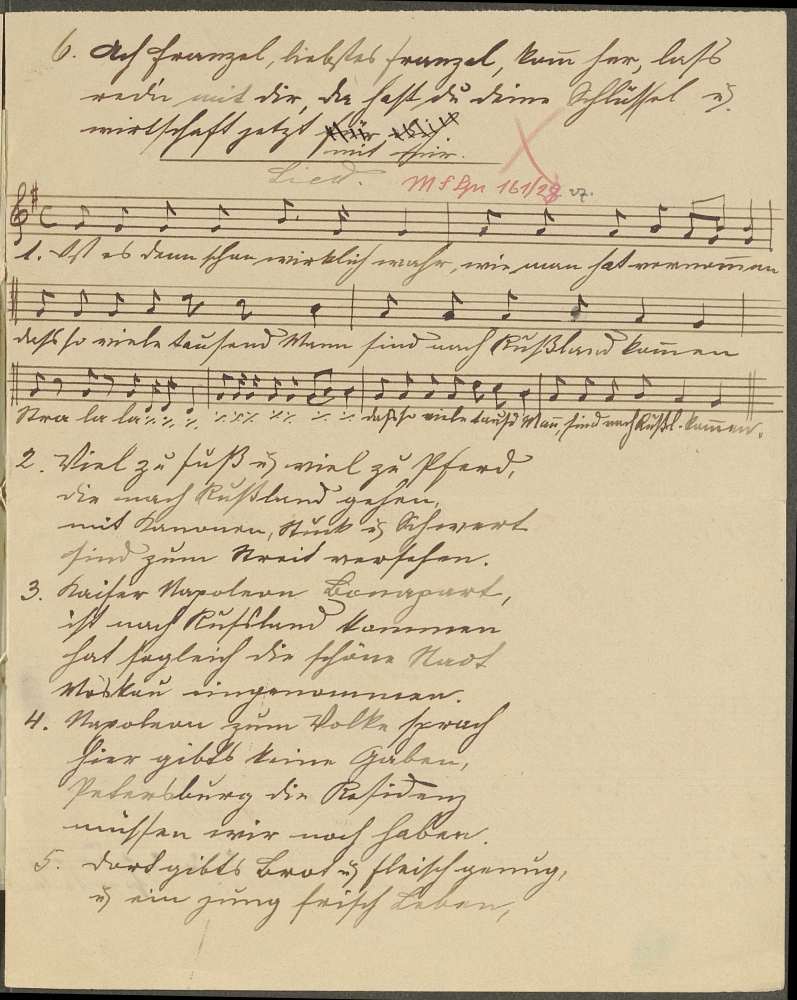 6. Ach Franzel, liebstes Franzel, kom̅ her, lass
redn mit dir, da hast du deine Schlüssel u.
wirtschaft jetzt für
mit mir.
Lied.
161/28 27.
1. Ist es denn schon wirklich wahr, wie man hat vernom̅en
dass so viele tausend Mann sind nach Rußland kom̅en
Stra la la la ٪ ٪ ٪ ٪ ٪ ٪ ٪ ٪ ٪ dass so viele tausd Man̅, sind nach Rußl. kom̅en.
2. Viel zu Fuß u. viel zu Pferd,
die nach Rußland gehen,
mit Kanonen, Stuck u. Schwert
sind zum Streit versehen.
3. Kaiser Napoleon Bonapart,
ist nach Russland kommen
hat sogleich die schöne Stadt
Moskau eingenommen.
4. Napoleon zum Volke sprach
hier gibts keine Gaben,
Petersburg die Residenz
müssen wir noch haben.
5. dort gibts Brot u. Fleisch genug,
u. ein jung frisch Leben,